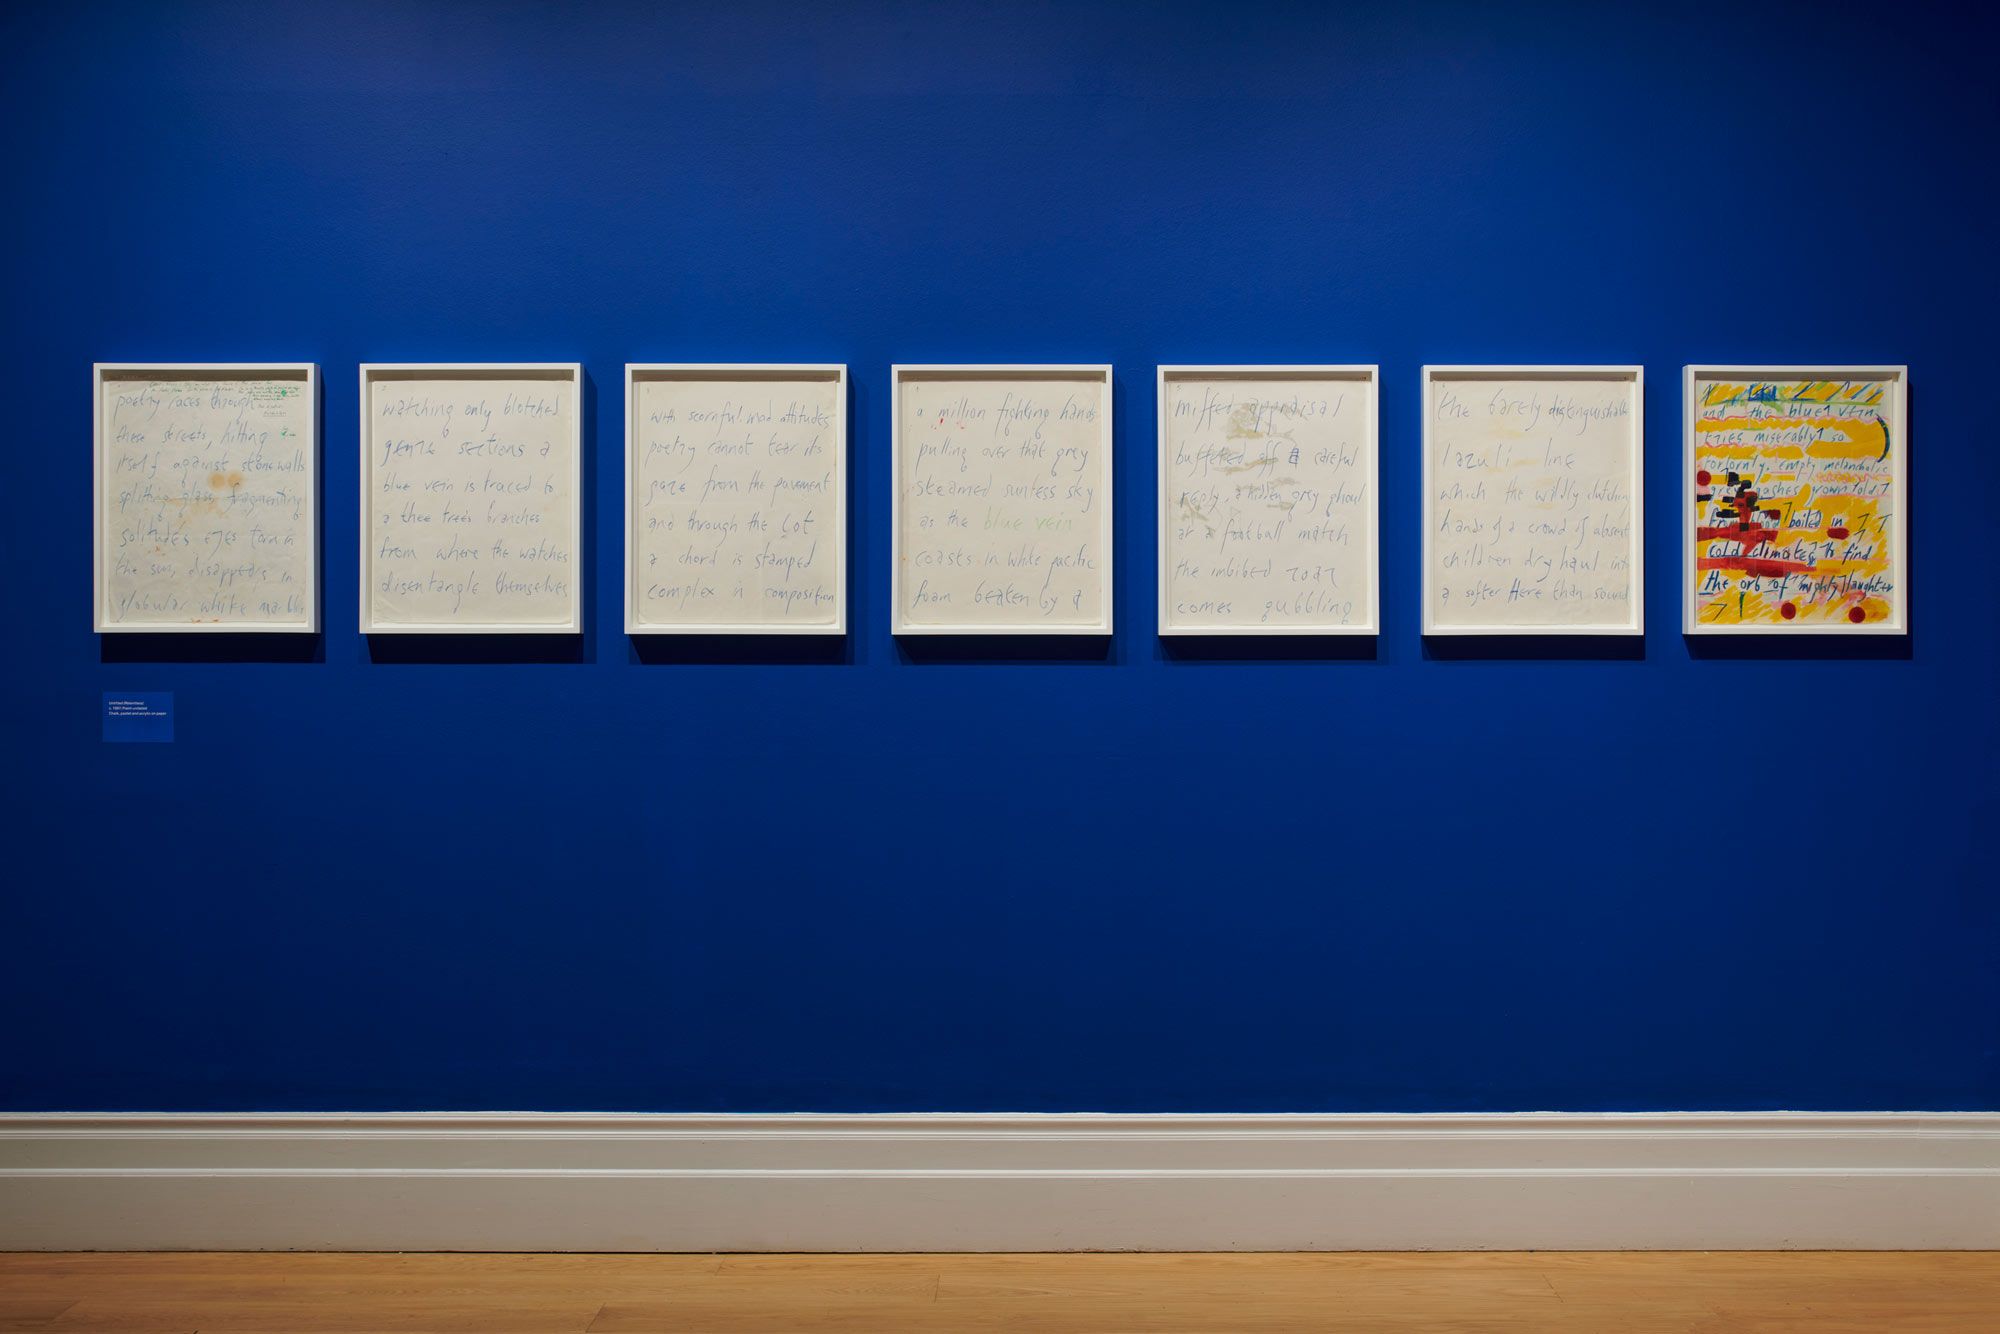 poetry races through
these streets, hitting
itself against stone walls
splitting glass, fragmenting
solitudes eyes torn in
the sun, disappears in
globular white marbles
2
watching only blotched
genre sections a
blue vein is traced to
a thee trees branches
from where the watches
disentangle themselves
3
with scornful mad attitudes
poetry cannot tear its
gaze from the pavement
and through the Lot
a chord is stamped
complex in composition
a million fighting hands
pulling over that grey
steamed sunless sky
as the blue vein
coasts in white pacific
foam beaten by a
5
miffed appraisal
buffeted off a careful
reply, a hidden grey ghoul
at a football match
the imbibed roar
comes gubbling
the barely distinguishable
lazuli line
which the wildly clutching
hands of a crowd of absent
children dry haul into
a softer Here than sound
and the blue vein
tries miserably so
forlornly, empty melancholic
grey ashes grown old
from boiled in
cold climates to find
the orb of mighty laughter
Untitled
c. 1991
Chalk, pastel and acrylic on paper